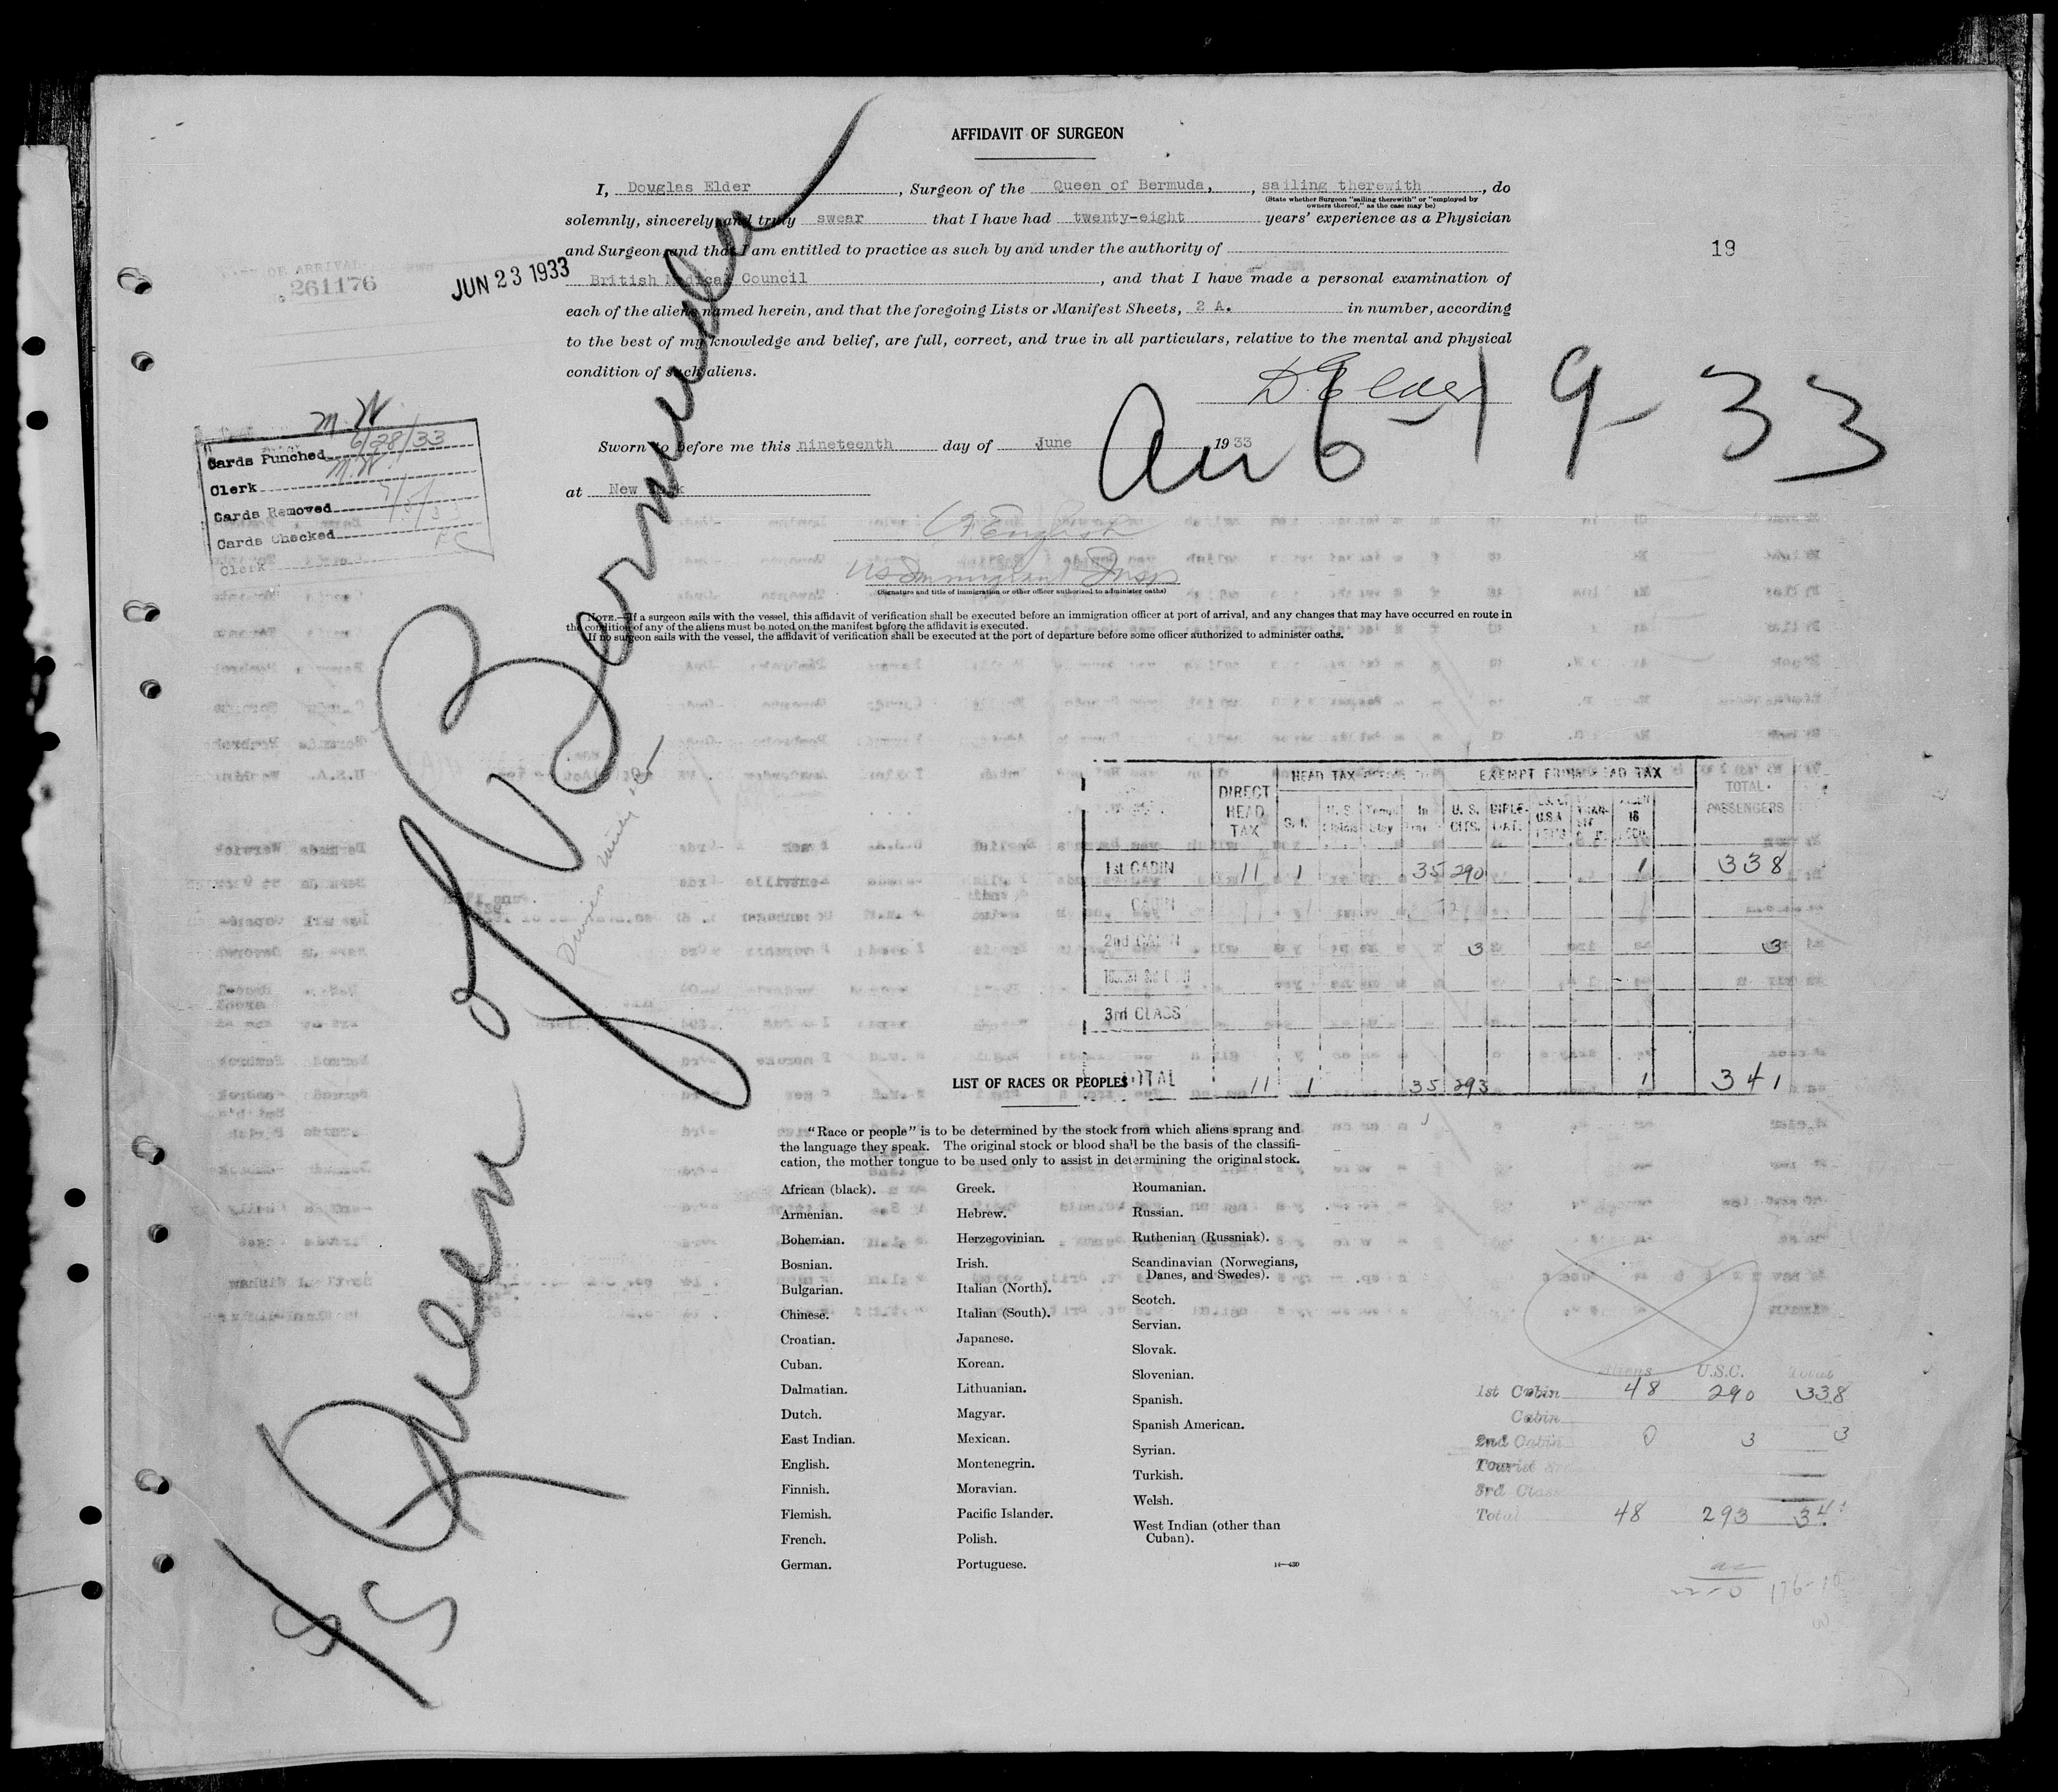 AFFIDAVIT OF SURGEON
I, Douglas Elder, Surgeon of the Queen of Bermuda, , sailing therewith, do
(State whether Surgeon "sailing therewith" or "employed by
owners thereof," as the case may be)
solemnly, sincerely and truly swear that I have had twenty-eight years' experience as a Physician
and Surgeon and that I am entitled to practice as such by and under the authority of
British Medical Council, and that I have made a personal examination of
each of the aliens named herein, and that the foregoing Lists or Manifest Sheets, 2 A. in number, according
to the best of my knowledge and belief, are full, correct, and true in all particulars, relative to the mental and physical
condition of such aliens.
19
OF ARRIVAL
261176
JUN 23 1933
D. Elder
Arr 6-19-33
Sworn to before me this nineteenth day of June 1933
at New York
English
US Immigrant Insp
(Signature and title of immigration or other officer authorized to administer oaths)
NOTE.—If a surgeon sails with the vessel, this affidavit of verification shall be executed before an immigration officer at port of arrival, and any changes that may have occurred en route in
the condition of any of the aliens must be noted on the manifest before the affidavit is executed.
If no surgeon sails with the vessel, the affidavit of verification shall be executed at the port of departure before some officer authorized to administer oaths.
M.W.
Cards Punched 6/28/33
Clerk M.W.
Cards Removed
Cards Checked
Clerk
SS Queen of Bermuda
DIRECT HEAD TAX
HEAD TAX
EXEMPT FROM HEAD TAX
TOTAL PASSENGERS
U. S. CITS.
1st CABIN 11 1 35 290 1 338
CABIN
2nd CABIN 3 3
3rd CLASS
TOTAL 11 1 35 293 1 341
LIST OF RACES OR PEOPLES
"Race or people" is to be determined by the stock from which aliens sprang and
the language they speak. The original stock or blood shall be the basis of the classifi-
cation, the mother tongue to be used only to assist in determining the original stock.
African (black).
Armenian.
Bohemian.
Bosnian.
Bulgarian.
Chinese.
Croatian.
Cuban.
Dalmatian.
Dutch.
East Indian.
English.
Finnish.
Flemish.
French.
German.
Greek.
Hebrew.
Herzegovinian.
Irish.
Italian (North).
Italian (South).
Japanese.
Korean.
Lithuanian.
Magyar.
Mexican.
Montenegrin.
Moravian.
Pacific Islander.
Polish.
Portuguese.
Roumanian.
Russian.
Ruthenian (Russniak).
Scandinavian (Norwegians,
Danes, and Swedes).
Scotch.
Servian.
Slovak.
Slovenian.
Spanish.
Spanish American.
Syrian.
Turkish.
Welsh.
West Indian (other than
Cuban).
14—430
Aliens U.S.C. Total
1st Cabin 48 290 338
Cabin
2nd Cabin 0 3 3
Tourist 3rd
3rd Class
Total 48 293 341